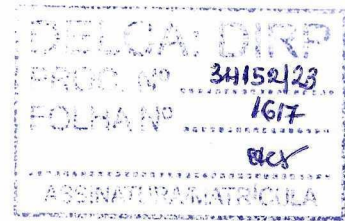 DELCA: DIRP
PROC. Nº 34152/23
FOLHA Nº 1617
ASSINATURA/MATRÍCULA